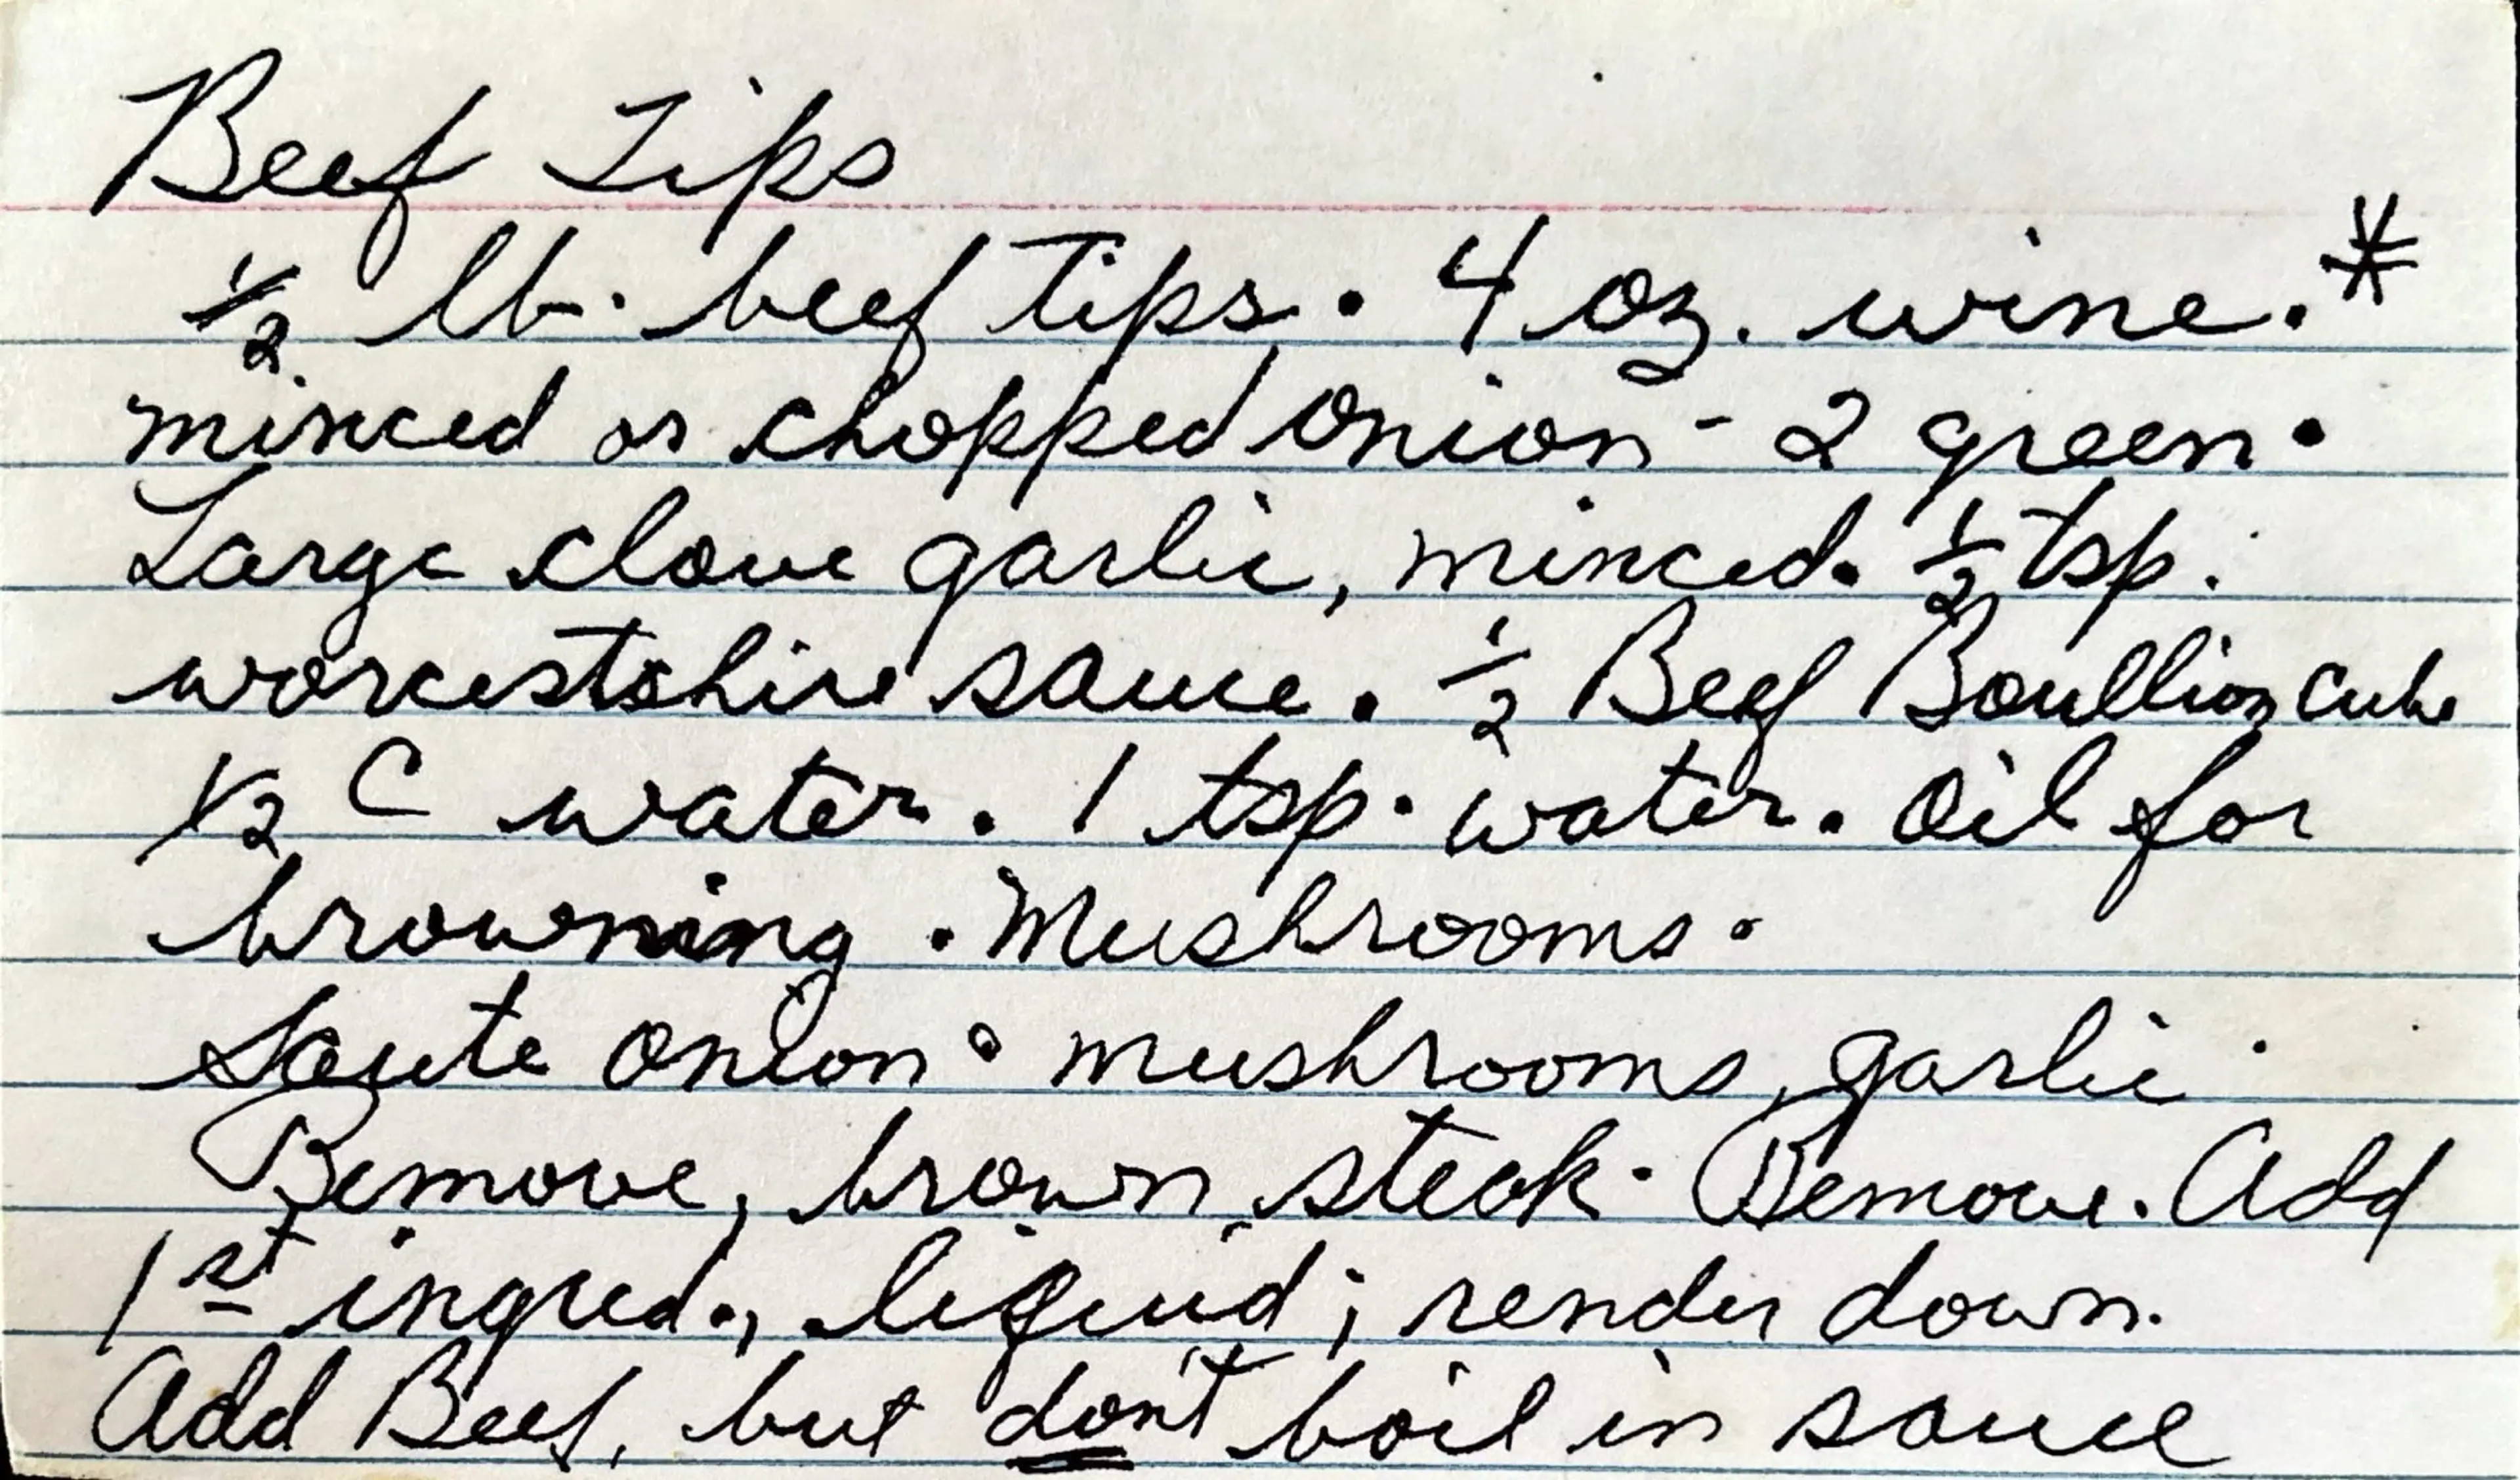 Beef Tips
1/2 lb. beef tips. • 4 oz. wine. *
minced or chopped onion - 2 green •
Large clove garlic, minced. 1/2 tsp.
worcestshire sauce. 1/2 Beef Boullion cube
1/2 C water. 1 tsp. water. Oil for
browning • Mushrooms •
Saute onion • mushrooms, garlic
Remove, brown steak. Remove. Add
1st ingred., liquid; render down.
Add Beef, but don't boil in sauce